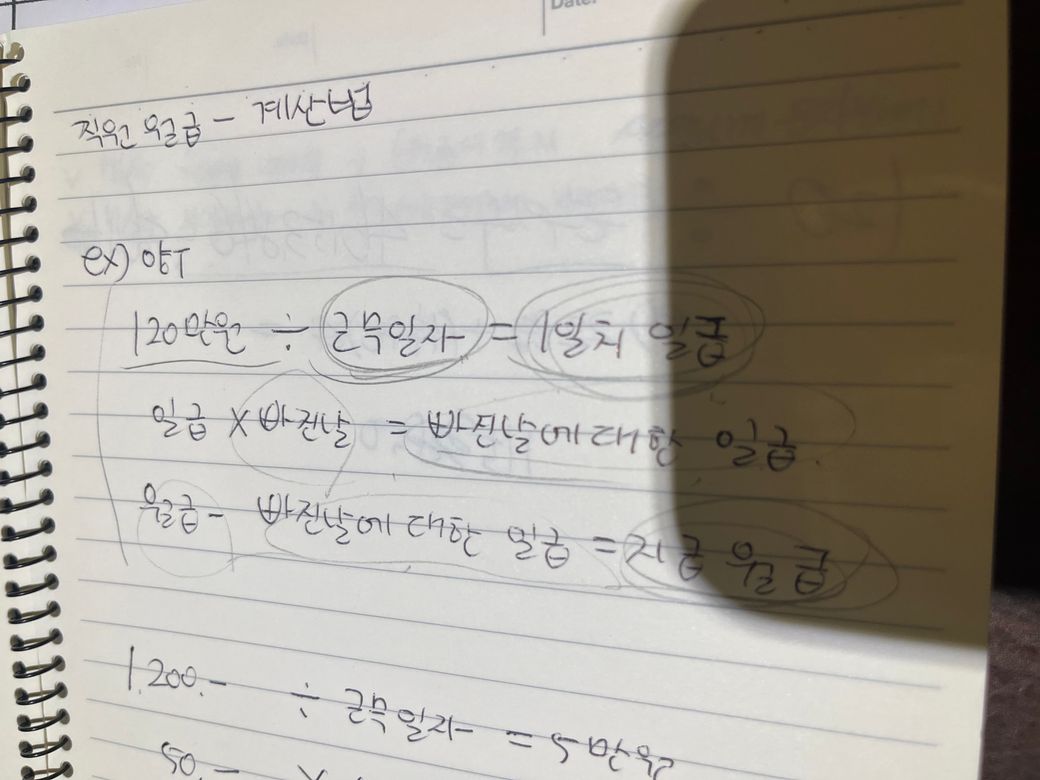 Date.
직원 월급 - 계산법
ex) 양T
120만원 ÷ 근무일자 = 1일치 일급
일급 X 빠진날 = 빠진날에 대한 일급.
월급 - 빠진날에 대한 일급 = 지급 월급
1.200.- ÷ 근무일자 = 5만원
50.- X